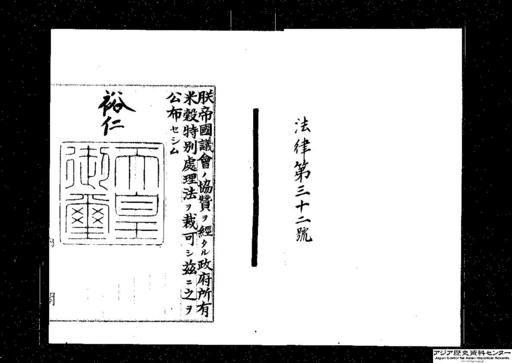 法律第三十二號
朕帝國議會ノ協贊ヲ經タル政府所有
米穀特別處理法ヲ裁可シ茲ニ之ヲ
公布セシム
裕仁
天皇
御璽
アジア歴史資料センター
Japan Center for Asian Historical Records